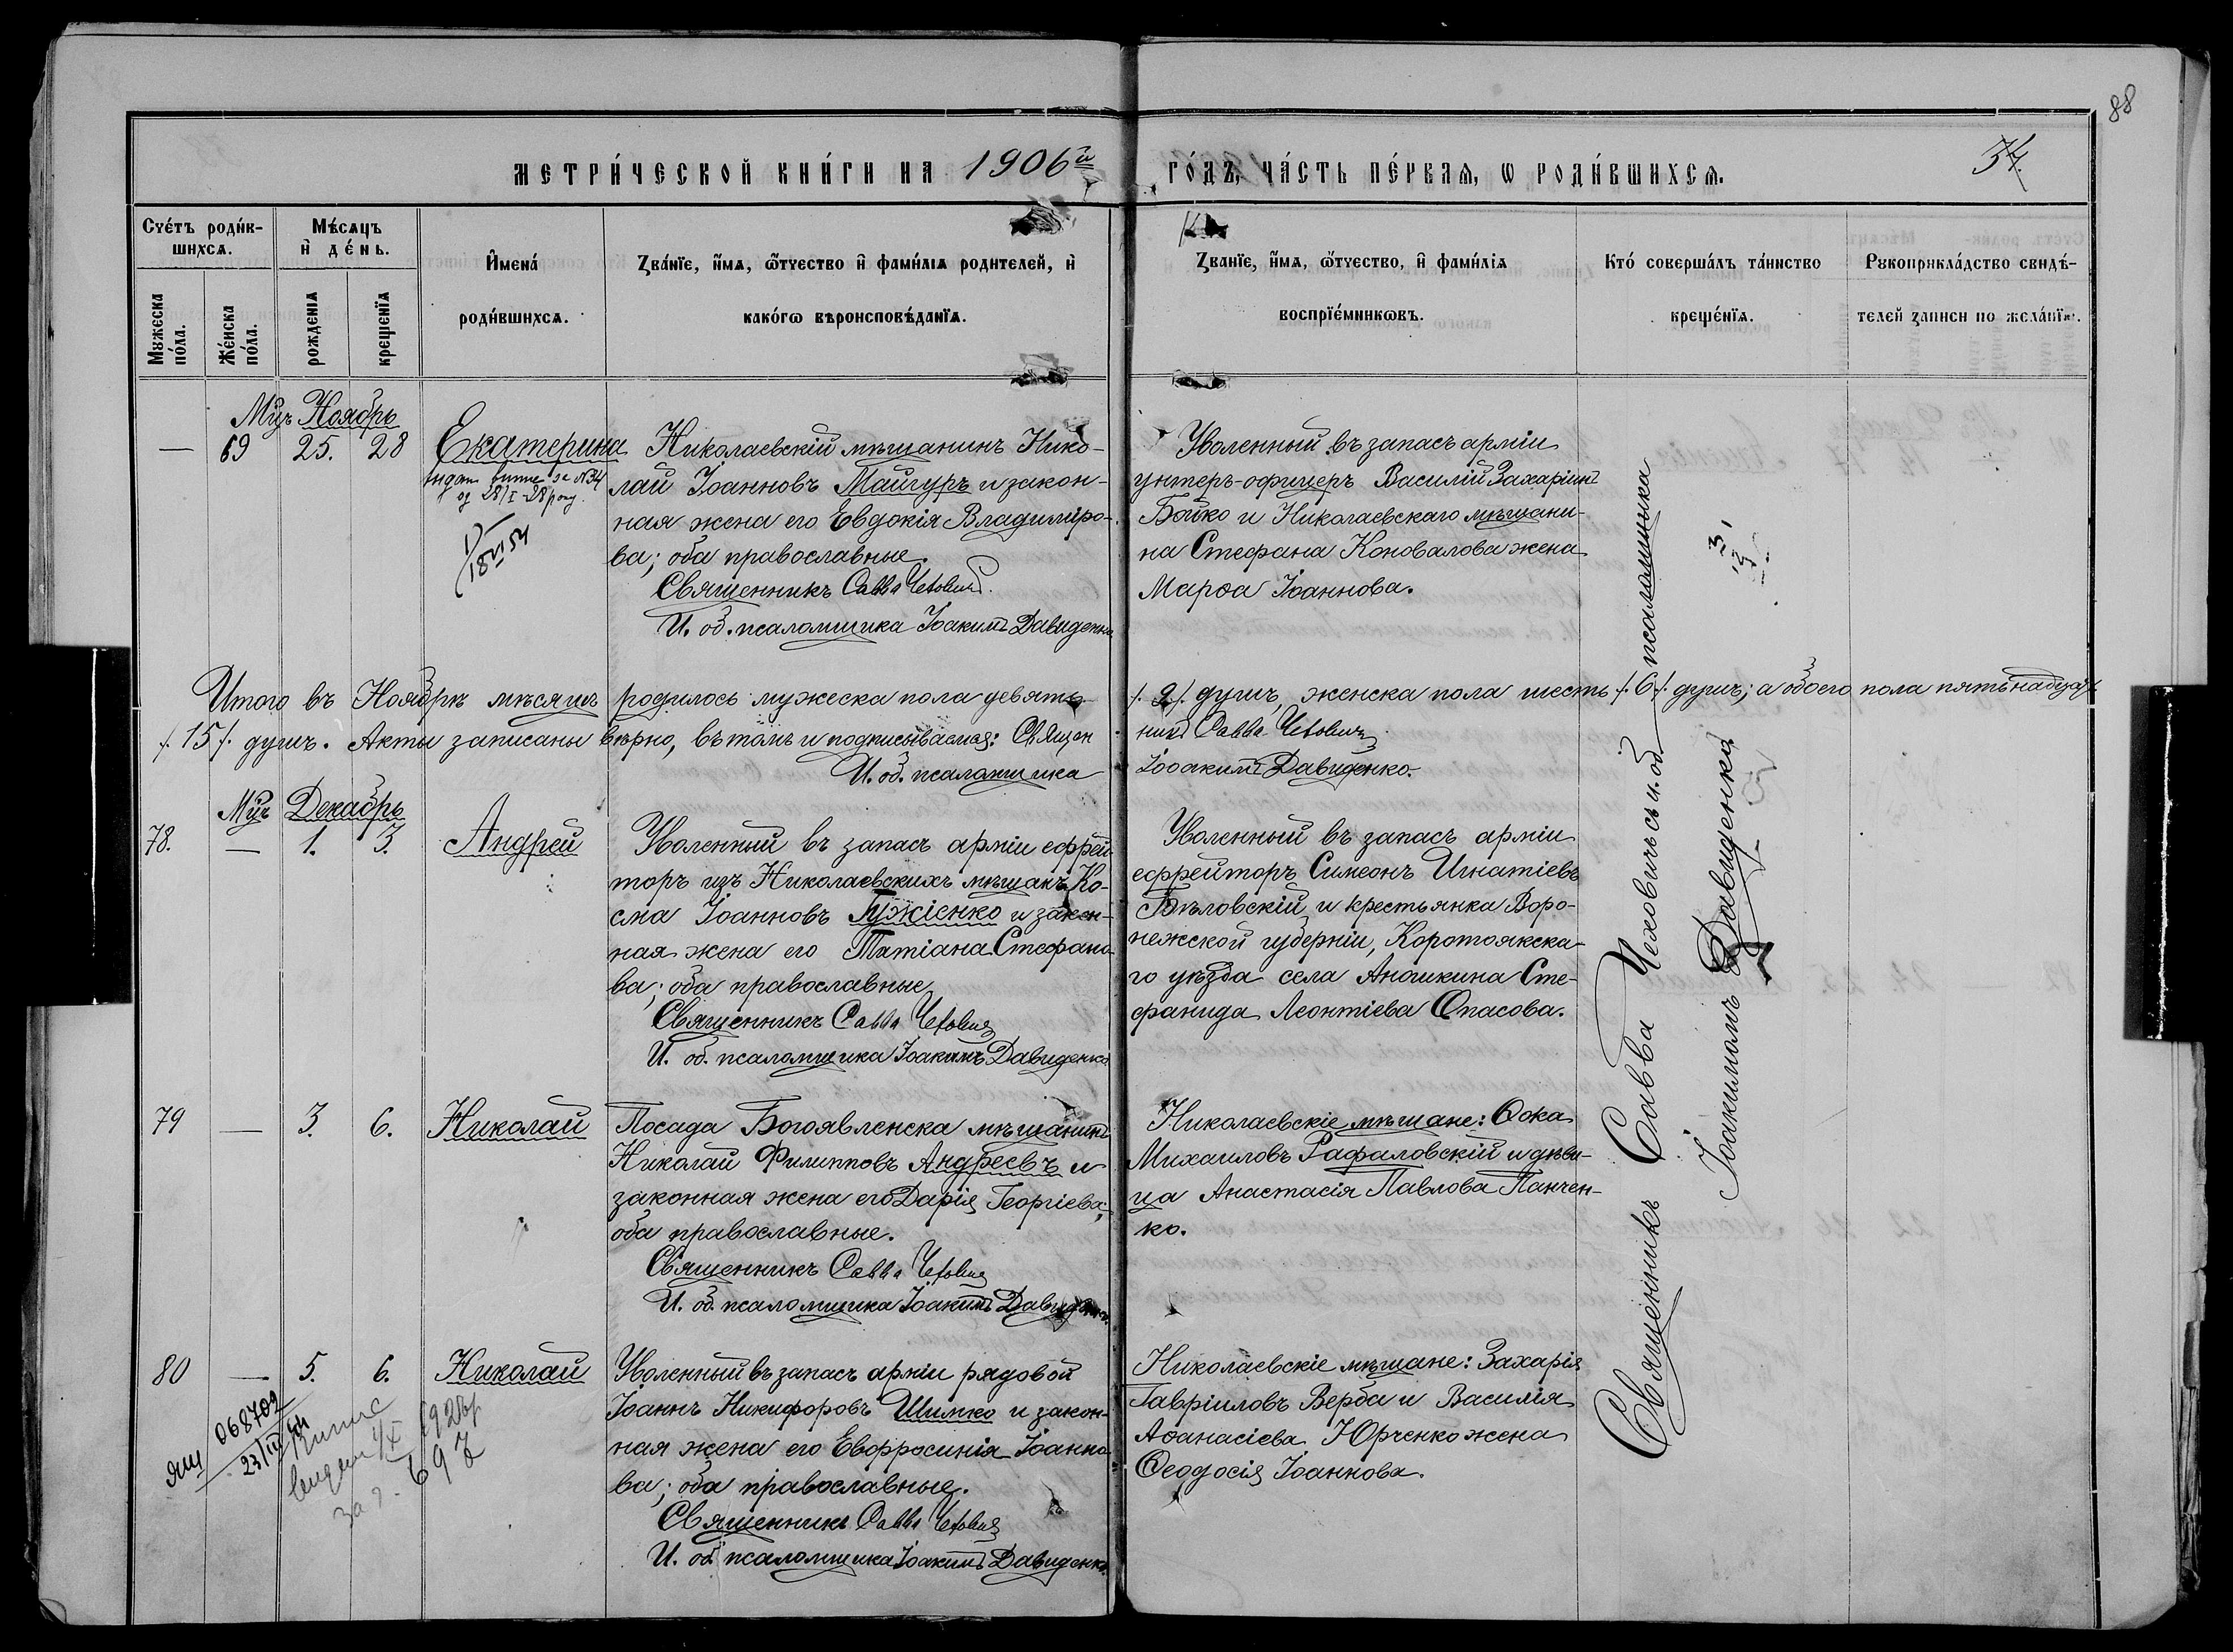 88
МЕТРИ́ЧЕСКОЙ КНИ́ГИ НА 1906й ГО́ДЪ, ЧА́СТЬ ПЕ́РВАѦ, Ѡ РОДИ́ВШИХСѦ.
34.
Счéтъ роди́в-
шихсѧ.
Мѣ́сѧцъ
и҆ де́нь.
И҆мена́
роди́вшихсѧ.
Зва́нїе, и҆́мѧ, ѻ҆́тчество и҆ фами́лїѧ родителей, и҆
како́гѡ вѣроисповѣ́данїѧ.
Зва́нїе, и҆́мѧ, ѻ҆́тчество, и҆ фами́лїѧ
воспрїе́мникѡвъ.
Кто́ соверша́лъ та́инство
креще́нїѧ.
Рꙋкоприкла́дство свидѣ́-
телей записи по жела́нїю.
Мꙋжеска
по́ла.
Же́нска
по́ла.
рожденїѧ
крещенїѧ
Мцъ Ноябрь
— 69 25. 28 Екатерина
28/I-28 року
18 VI 54
Николаевскій мѣщанинъ Нико-
лай Іоанновъ Майгуръ и закон-
ная жена его Евдокія Владиміро-
ва; оба православные.
Священникъ Савва Чехович
И. об. псаломщика Іоакимъ Давиденко
Уволенный въ запасъ арміи
унтеръ-офицеръ Василій Захаріинъ
Бойко и Николаевскаго мѣщани-
на Стефана Коновалова жена
Марѳа Іоаннова.
Итого въ Ноябрѣ мѣсяцѣ родилось мужеска пола девять /. 9 /. душъ, женска пола шесть /. 6 /. душъ; а обоего пола пятьнадцать
/. 15 /. душъ. Акты записаны вѣрно, въ томъ и подписываемся: Священ
никъ Савва Чеховичъ
И. об. псаломщика Іоакимъ Давиденко.
Мцъ Декабрь
78. — 1. 3. Андрей
Уволенный въ запасъ арміи ефрей-
торъ изъ Николаевскихъ мѣщанъ Ко-
сма Іоанновъ Гужіенко и закон-
ная жена его Татіана Стефано-
ва; оба православные
Священникъ Савва Чехович
И. об. псаломщика Іоакимъ Давиденко
Уволенный въ запасъ арміи
ефрейторъ Симеонъ Игнатіевъ
Бѣловскій и крестьянка Воро-
нежской губерніи, Коротоякска-
го уѣзда села Аношкина Сте-
фанида Леонтіева Опасова.
79 — 3. 6. Николай
Посада Богоявленска мѣщанинъ
Николай Филипповъ Андреевъ и
законная жена его Дарія Георгіева;
оба православные.
Священникъ Савва Чехович
И. об. псаломщика Іоакимъ Давиденко
Николаевскіе мѣщане: Ѳока
Михаиловъ Рафаловскій и дѣви-
ца Анастасія Павлова Панчен-
ко.
80 — 5. 6. Николай
068702
23/III 44
1928р
за № 697
Уволенный въ запасъ арміи рядовой
Іоаннъ Никифоровъ Шимко и закон-
ная жена его Евфросинія Іоанно-
ва; оба православные.
Священникъ Савва Чехович
И. об. псаломщика Іоакимъ Давиденко.
Николаевскіе мѣщане: Захарія
Гавріиловъ Верба и Василія
Аѳанасіева Юрченко жена
Ѳеодосія Іоаннова.
Священникъ Савва Чеховичъ съ и. об. псаломщика
Іоакимомъ Давиденко